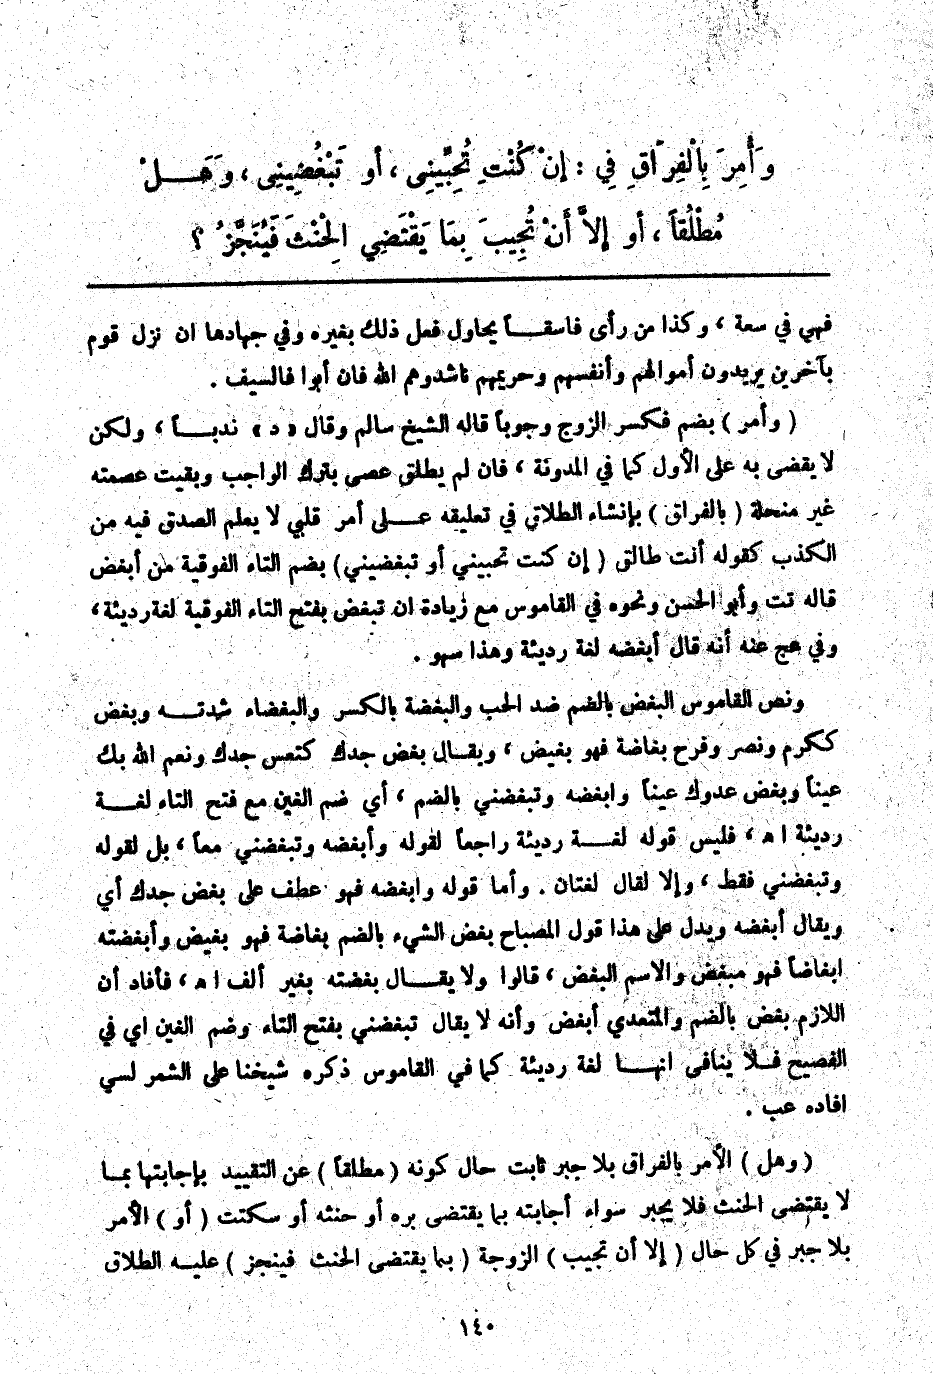 وَأُمِرَ بِالْفِرَاقِ فِي : إِنْ كُنْتِ تُحِبِّينِى ، أو تَبْغُضِينِى ، وَهَلْ
مُطْلَقاً ، أو إلاَّ أَنْ تُجِيبَ بِمَا يَقْتَضِي الْحِنْثَ فَيُنَجَّزُ ؟
فهي في سعة ، وكذا من رأى فاسقاً يحاول فعل ذلك بغيره وفي جهادها ان نزل قوم
بآخرين يريدون أموالهم وأنفسهم وحريمهم ناشدوهم الله فان أبوا فالسيف .
( وأمر ) بضم فكسر الزوج وجوباً قاله الشيخ سالم وقال « د » ندباً ، ولكن
لا يقضى به على الأول كما في المدونة ، فان لم يطلق عصى بترك الواجب وبقيت عصمته
غير منحلة ( بالفراق ) بإنشاء الطلاق في تعليقه على أمر قلبي لا يعلم الصدق فيه من
الكذب كقوله أنت طالق ( إن كنت تحبيني أو تبغضيني ) بضم التاء الفوقية من أبغض
قاله تت وأبو الحسن ونحوه في القاموس مع زيادة ان تبغض بفتح التاء الفوقية لغة رديئة ،
وفي عج عنه أنه قال أبغضه لغة رديئة وهذا سهو .
ونص القاموس البغض بالضم ضد الحب والبغضة بالكسر والبغضاء شدته وبغض
ككرم ونصر وفرح بغاضة فهو بغيض ، ويقال بغض جدك كتعس جدك ونعم الله بك
عيناً وبغض عدوك عيناً وابغضه وتبغضني بالضم ، أي ضم الغين مع فتح التاء لغة
رديئة ا ه ، فليس قوله لغة رديئة راجعاً لقوله وأبغضه وتبغضني معاً ، بل لقوله
وتبغضني فقط ، وإلا لقال لغتان . وأما قوله وابغضه فهو عطف على بغض جدك أي
ويقال أبغضه ويدل على هذا قول المصباح بغض الشيء بالضم بغاضة فهو بغيض وأبغضته
ابغاضاً فهو مبغض والاسم البغض ، قالوا ولا يقال بغضته بغير ألف ا ه ، فأفاد أن
اللازم بغض بالضم والمتعدي أبغض وأنه لا يقال تبغضني بفتح التاء وضم الغين اي في
الفصيح فلا ينافى انها لغة رديئة كما في القاموس ذكره شيخنا على الشمر لسي
افاده عب .
( وهل ) الأمر بالفراق بلا جبر ثابت حال كونه ( مطلقاً ) عن التقييد بإجابتها بما
لا يقتضى الحنث فلا يجبر سواء أجابته بما يقتضى بره أو حنثه أو سكتت ( أو ) الأمر
بلا جبر في كل حال ( إلا أن تجيب ) الزوجة ( بما يقتضى الحنث فينجز ) عليه الطلاق
١٤٠